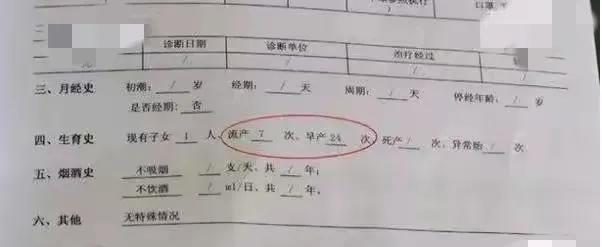 诊断日期 诊断单位 治疗经过
/ / /
三、月经史 初潮: / 岁 经期: / 天 周期: / 天 停经年龄: / 岁
是否经期: 否
四、生育史 现有子女 1 人、流产 7 次、早产 24 次、死产 / 次、异常胎 / 次
五、烟酒史 不吸烟 / 支/天、共 / 年;
不饮酒 / ml/日、共 / 年。
六、其他 无特殊情况